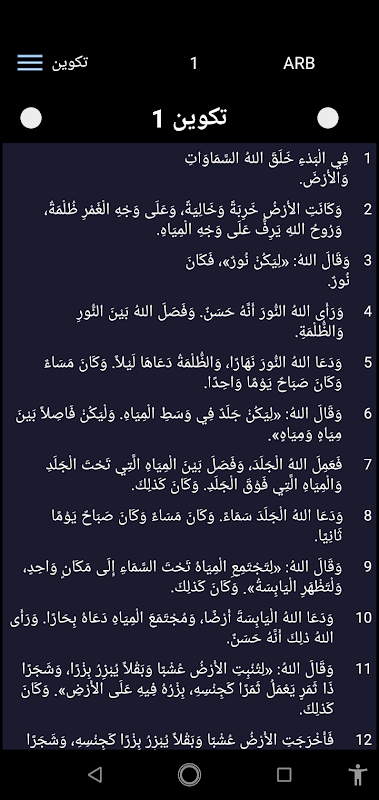 تكوين 1 ARB
تكوين 1
1 فِي الْبَدْءِ خَلَقَ اللهُ السَّمَاوَاتِ
وَالأَرْضَ.
2 وَكَانَتِ الأَرْضُ خَرِبَةً وَخَالِيَةً، وَعَلَى وَجْهِ الْغَمْرِ ظُلْمَةٌ،
وَرُوحُ اللهِ يَرِفُّ عَلَى وَجْهِ الْمِيَاهِ.
3 وَقَالَ اللهُ: «لِيَكُنْ نُورٌ»، فَكَانَ
نُورٌ.
4 وَرَأَى اللهُ النُّورَ أَنَّهُ حَسَنٌ. وَفَصَلَ اللهُ بَيْنَ النُّورِ
وَالظُّلْمَةِ.
5 وَدَعَا اللهُ النُّورَ نَهَارًا، وَالظُّلْمَةُ دَعَاهَا لَيْلاً. وَكَانَ مَسَاءٌ
وَكَانَ صَبَاحٌ يَوْمًا وَاحِدًا.
6 وَقَالَ اللهُ: «لِيَكُنْ جَلَدٌ فِي وَسَطِ الْمِيَاهِ. وَلْيَكُنْ فَاصِلاً بَيْنَ
مِيَاهٍ وَمِيَاهٍ».
7 فَعَمِلَ اللهُ الْجَلَدَ، وَفَصَلَ بَيْنَ الْمِيَاهِ الَّتِي تَحْتَ الْجَلَدِ
وَالْمِيَاهِ الَّتِي فَوْقَ الْجَلَدِ. وَكَانَ كَذلِكَ.
8 وَدَعَا اللهُ الْجَلَدَ سَمَاءً. وَكَانَ مَسَاءٌ وَكَانَ صَبَاحٌ يَوْمًا
ثَانِيًا.
9 وَقَالَ اللهُ: «لِتَجْتَمِعِ الْمِيَاهُ تَحْتَ السَّمَاءِ إِلَى مَكَانٍ وَاحِدٍ،
وَلْتَظْهَرِ الْيَابِسَةُ». وَكَانَ كَذلِكَ.
10 وَدَعَا اللهُ الْيَابِسَةَ أَرْضًا، وَمُجْتَمَعَ الْمِيَاهِ دَعَاهُ بِحَارًا. وَرَأَى
اللهُ ذلِكَ أَنَّهُ حَسَنٌ.
11 وَقَالَ اللهُ: «لِتُنْبِتِ الأَرْضُ عُشْبًا وَبَقْلاً يُبْزِرُ بِزْرًا، وَشَجَرًا
ذَا ثَمَرٍ يَعْمَلُ ثَمَرًا كَجِنْسِهِ، بِزْرُهُ فِيهِ عَلَى الأَرْضِ». وَكَانَ
كَذلِكَ.
12 فَأَخْرَجَتِ الأَرْضُ عُشْبًا وَبَقْلاً يُبْزِرُ بِزْرًا كَجِنْسِهِ، وَشَجَرًا